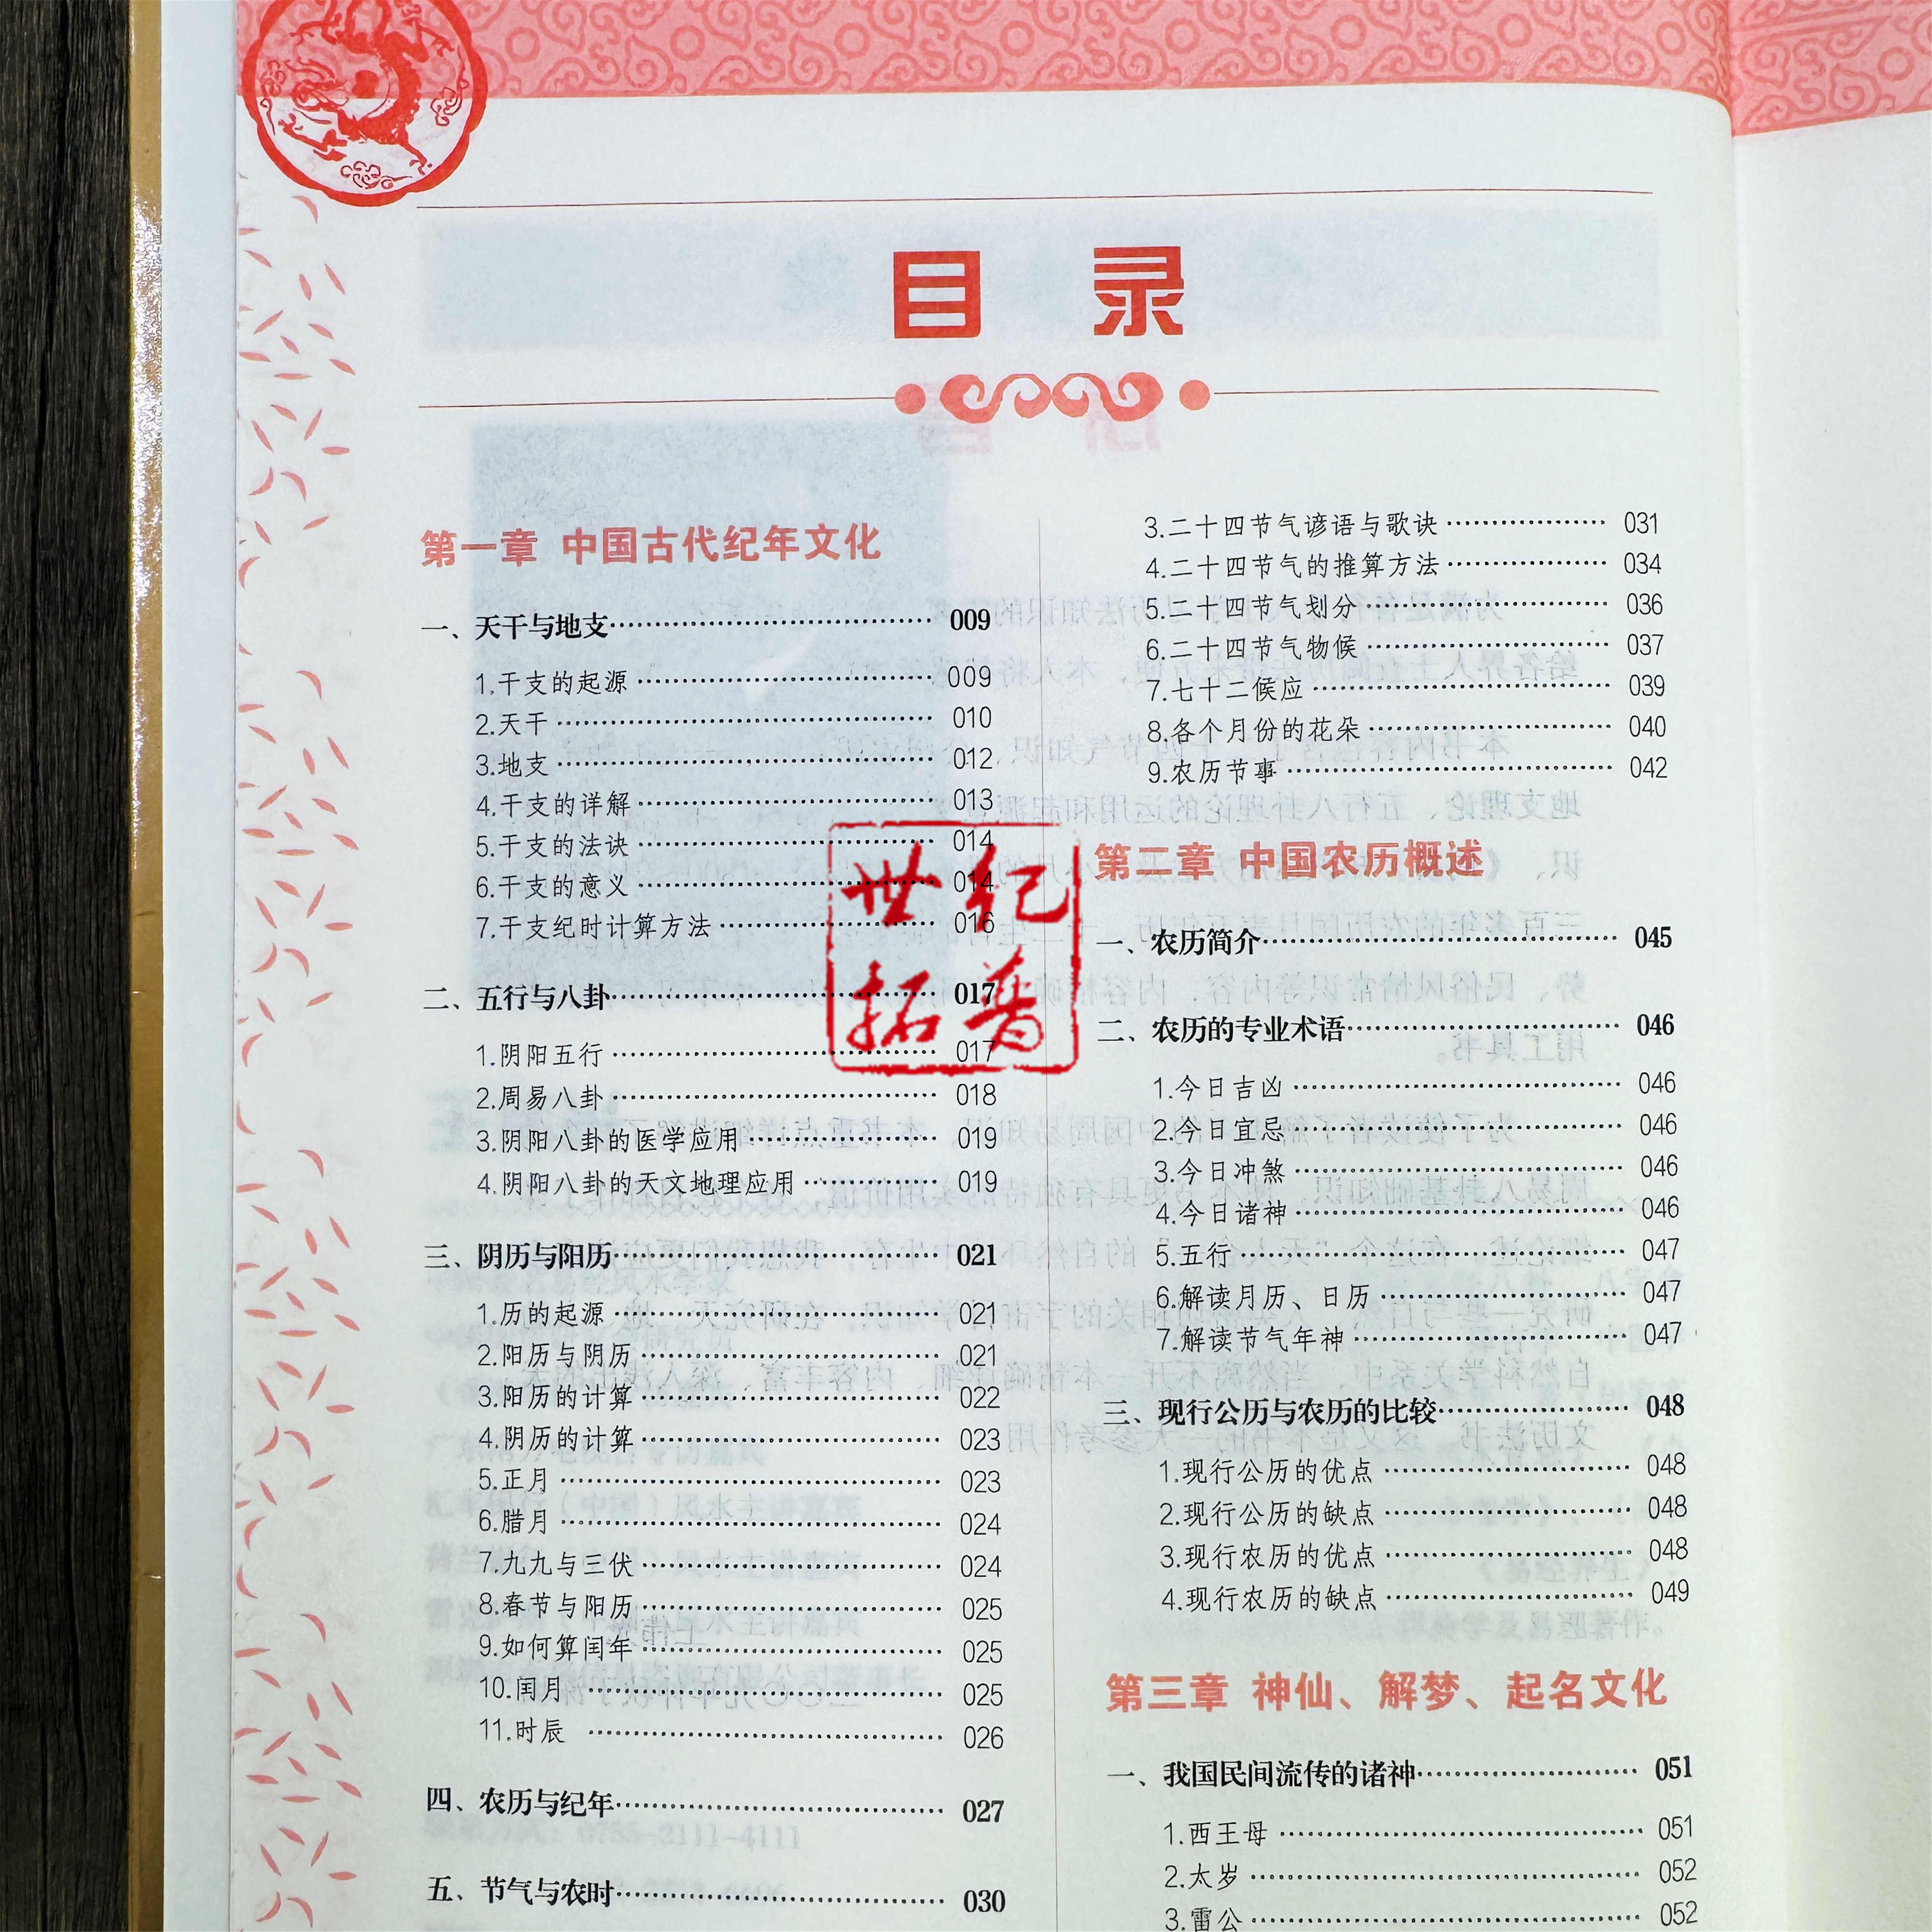 目 录
第一章 中国古代纪年文化
一、天干与地支 009
1.干支的起源 009
2.天干 010
3.地支 012
4.干支的详解 013
5.干支的法诀 014
6.干支的意义 014
7.干支纪时计算方法 016
二、五行与八卦 017
1.阴阳五行 017
2.周易八卦 018
3.阴阳八卦的医学应用 019
4.阴阳八卦的天文地理应用 019
三、阴历与阳历 021
1.历的起源 021
2.阳历与阴历 021
3.阳历的计算 022
4.阴历的计算 023
5.正月 023
6.腊月 024
7.九九与三伏 024
8.春节与阳历 025
9.如何算闰年 025
10.闰月 025
11.时辰 026
四、农历与纪年 027
五、节气与农时 030
3.二十四节气谚语与歌诀 031
4.二十四节气的推算方法 034
5.二十四节气划分 036
6.二十四节气物候 037
7.七十二候应 039
8.各个月份的花朵 040
9.农历节事 042
第二章 中国农历概述
一、农历简介 045
二、农历的专业术语 046
1.今日吉凶 046
2.今日宜忌 046
3.今日冲煞 046
4.今日诸神 046
5.五行 047
6.解读月历、日历 047
7.解读节气年神 047
三、现行公历与农历的比较 048
1.现行公历的优点 048
2.现行公历的缺点 048
3.现行农历的优点 048
4.现行农历的缺点 049
第三章 神仙、解梦、起名文化
一、我国民间流传的诸神 051
1.西王母 051
2.太岁 052
3.雷公 052
世纪
拓普